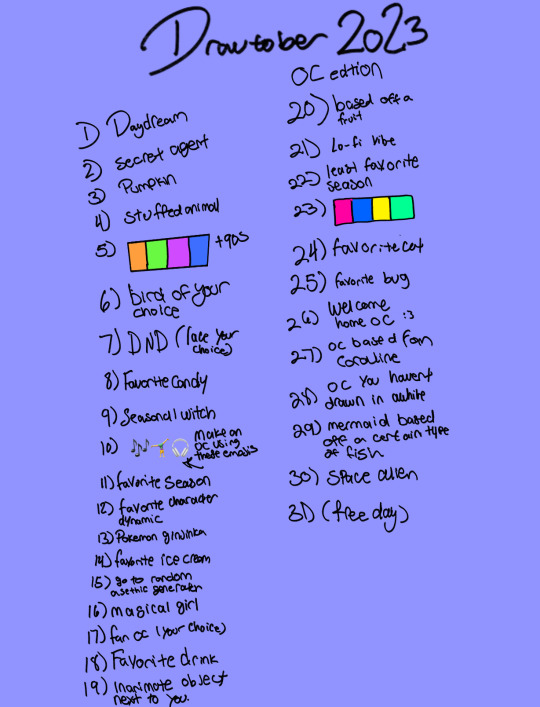 Drawtober 2023
OC edition
1) Daydream
2) secret agent
3) Pumpkin
4) stuffed animal
5) +90s
6) bird of your
choice
7) DND (race your
choice)
8) Favorite candy
9) Seasonal witch
10) Make an
OC using
these emojis
11) favorite season
12) favorite character
dynamic
13) Pokemon ginjinka
14) favorite ice cream
15) go to random
asethic generator
16) magical girl
17) fan oc (your choice)
18) Favorite drink
19) Inanimate object
next to you.
20) based off a
fruit
21) Lo-fi vibe
22) least favorite
season
23)
24) favorite cat
25) favorite bug
26) Welcome
home OC :3
27) OC based from
coraline
28) OC you havent
drawn in awhile
29) mermaid based
off a certain type
of fish
30) space alien
31) (free day)